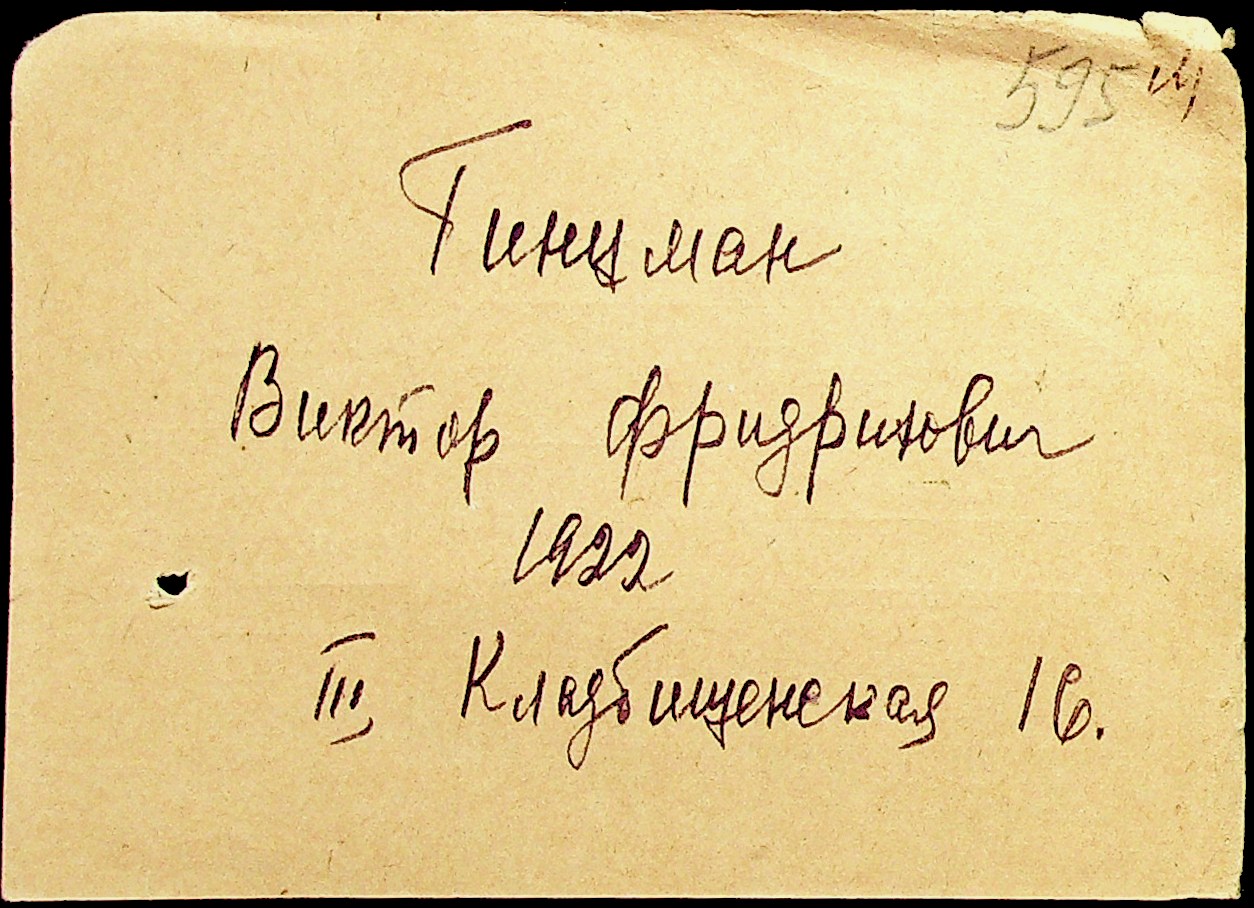 595
Гинцман
Виктор Фридрихович
1922
III Кладбищенская 16.